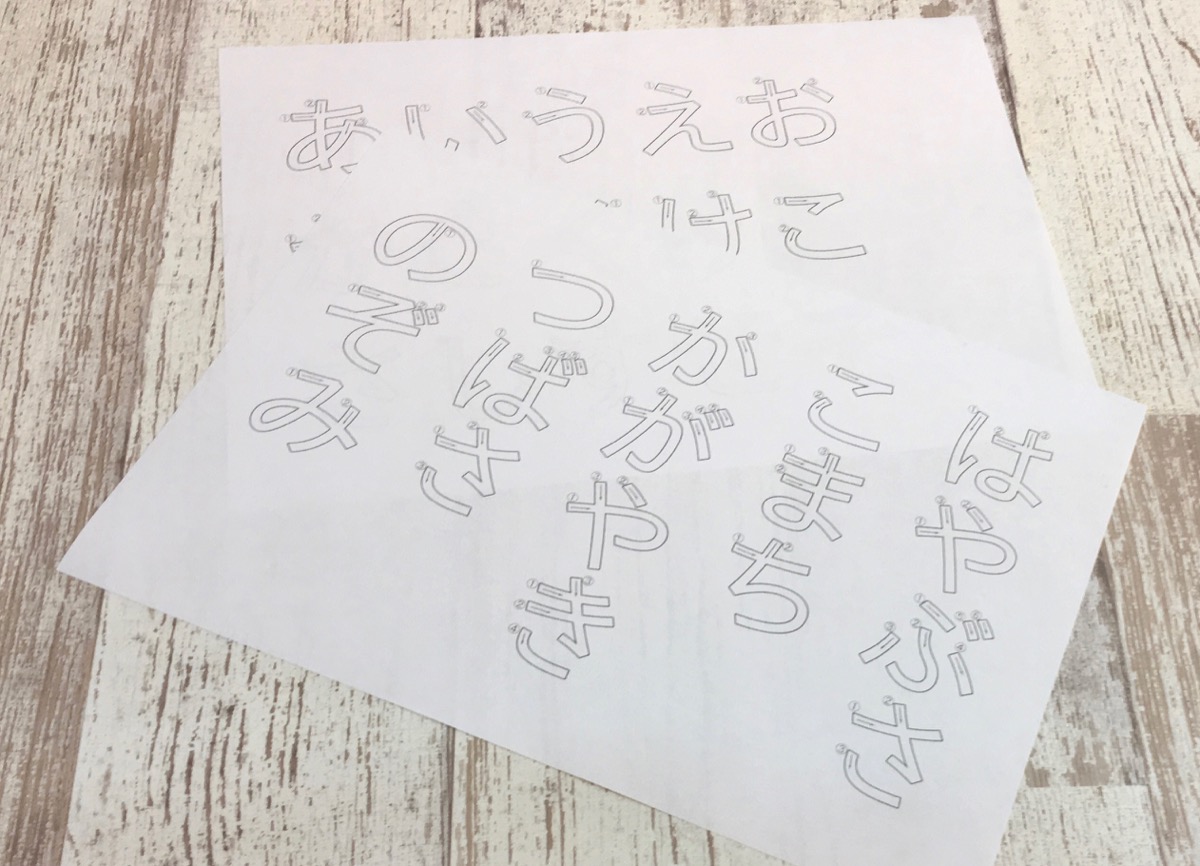 あいうえお
けこ
はやぶさ
こまち
かがやき
つばさ
のぞみ